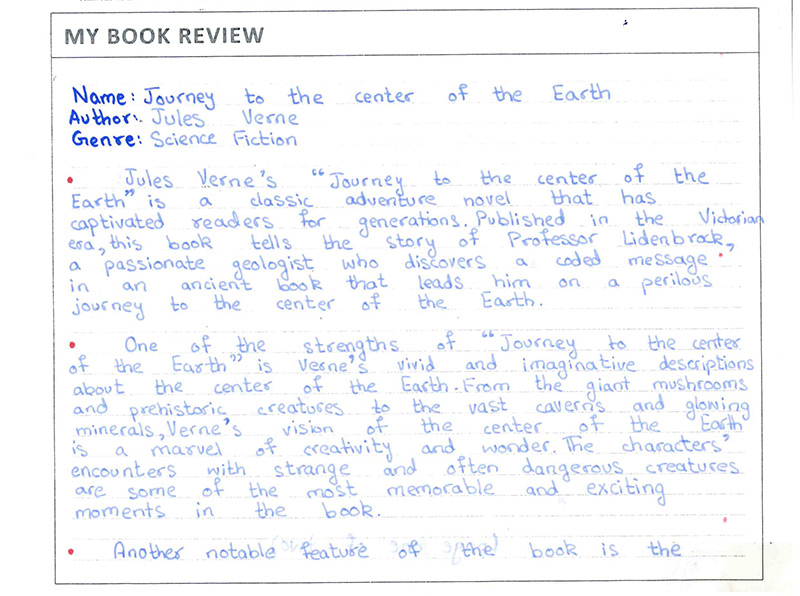 MY BOOK REVIEW
Name: Journey to the center of the Earth
Author: Jules Verne
Genre: Science Fiction
• Jules Verne's "Journey to the center of the
Earth" is a classic adventure novel that has
captivated readers for generations. Published in the Victorian
era, this book tells the story of Professor Lidenbrock,
a passionate geologist who discovers a coded message
in an ancient book that leads him on a perilous
journey to the center of the Earth.
• One of the strengths of "Journey to the center
of the Earth" is Verne's vivid and imaginative descriptions
about the center of the Earth. From the giant mushrooms
and prehistoric creatures to the vast caverns and glowing
minerals, Verne's vision of the center of the Earth
is a marvel of creativity and wonder. The characters'
encounters with strange and often dangerous creatures
are some of the most memorable and exciting
moments in the book.
• Another notable feature of the book is the